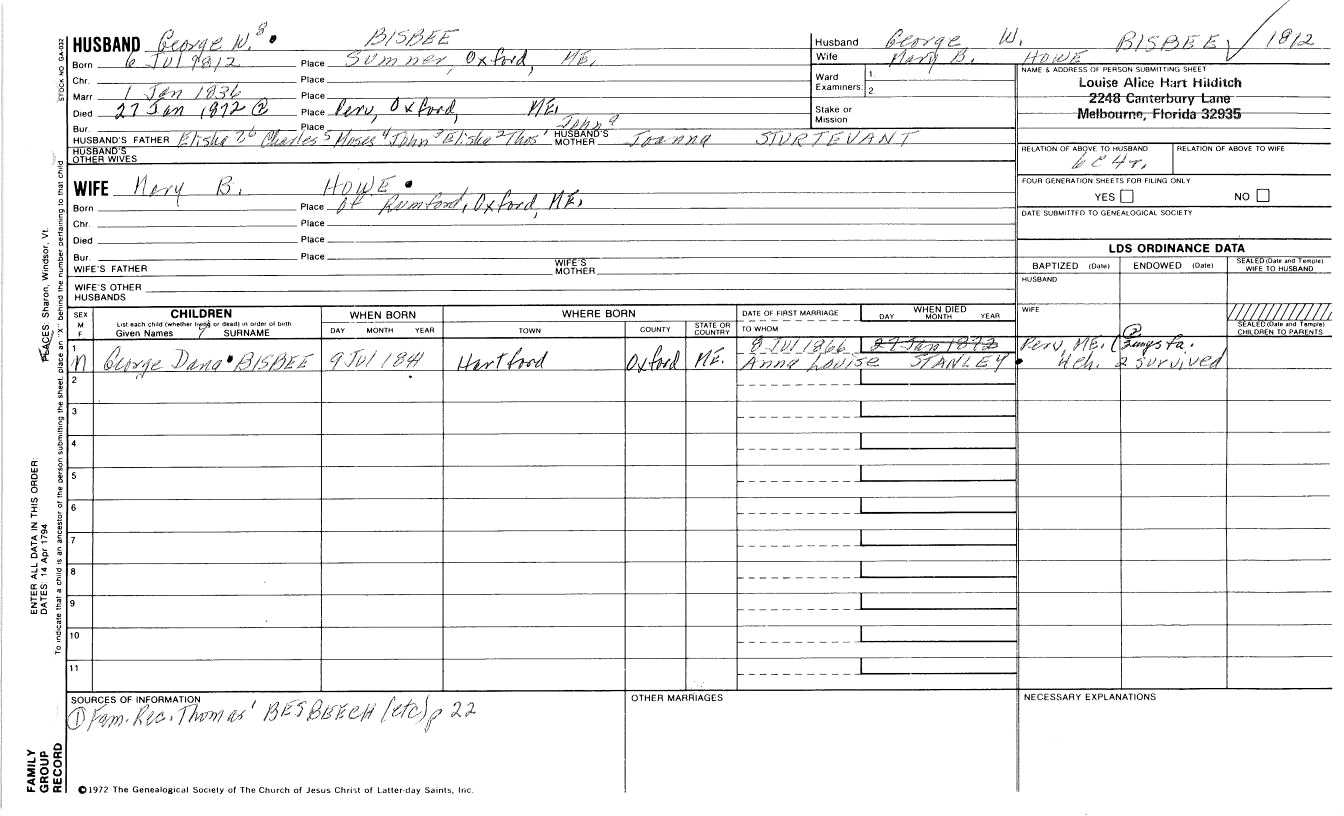 HUSBAND George W.8 BISBEE
Born 6 Jul 1812 Place Sumner, Oxford, ME.
Chr. Place
Marr 1 Jan 1836 Place
Died 27 Jan 1872 Place Peru, Oxford, ME.
Bur. Place
HUSBAND'S FATHER Elisha 7,6 Charles5 Moses4 John3 Elisha2 Thos1 HUSBAND'S MOTHER Joanna STURTEVANT
HUSBAND'S OTHER WIVES
WIFE Mary B. HOWE
Born Place of Rumford, Oxford, ME.
Chr. Place
Died Place
Bur. Place
WIFE'S FATHER WIFE'S MOTHER
WIFE'S OTHER HUSBANDS
Husband George W. BISBEE √ 1812
Wife Mary B. HOWE
Ward 1.
Examiners: 2.
Stake or Mission
NAME & ADDRESS OF PERSON SUBMITTING SHEET
Louise Alice Hart Hilditch
2248 Canterbury Lane
Melbourne, Florida 32935
RELATION OF ABOVE TO HUSBAND RELATION OF ABOVE TO WIFE
6C4r.
FOUR GENERATION SHEETS FOR FILING ONLY
YES NO
DATE SUBMITTED TO GENEALOGICAL SOCIETY
LDS ORDINANCE DATA
BAPTIZED (Date) ENDOWED (Date) SEALED (Date and Temple) WIFE TO HUSBAND
HUSBAND
WIFE
SEALED (Date and Temple) CHILDREN TO PARENTS
SEX M F
CHILDREN
List each child (whether living or dead) in order of birth
Given Names SURNAME
WHEN BORN
DAY MONTH YEAR
WHERE BORN
TOWN COUNTY STATE OR COUNTRY
DATE OF FIRST MARRIAGE
TO WHOM
WHEN DIED
DAY MONTH YEAR
1 M George Dana BISBEE 9 Jul 1841 Hartford Oxford ME. 8 Jul 1866 27 Jan 1872 Peru, ME.
Anna Louise STANLEY 4ch. 2 survived
2
3
4
5
6
7
8
9
10
11
SOURCES OF INFORMATION
① Fam. Rec. Thomas' BESBEECH (etc) p 22
OTHER MARRIAGES
NECESSARY EXPLANATIONS
©1972 The Genealogical Society of The Church of Jesus Christ of Latter-day Saints, Inc.
STOCK NO GA-032
ENTER ALL DATA IN THIS ORDER:
DATES: 14 Apr 1794
PLACES: Sharon, Windsor, Vt.
To indicate that a child is an ancestor of the person submitting the sheet, place an "X" behind the number pertaining to that child
FAMILY
GROUP
RECORD